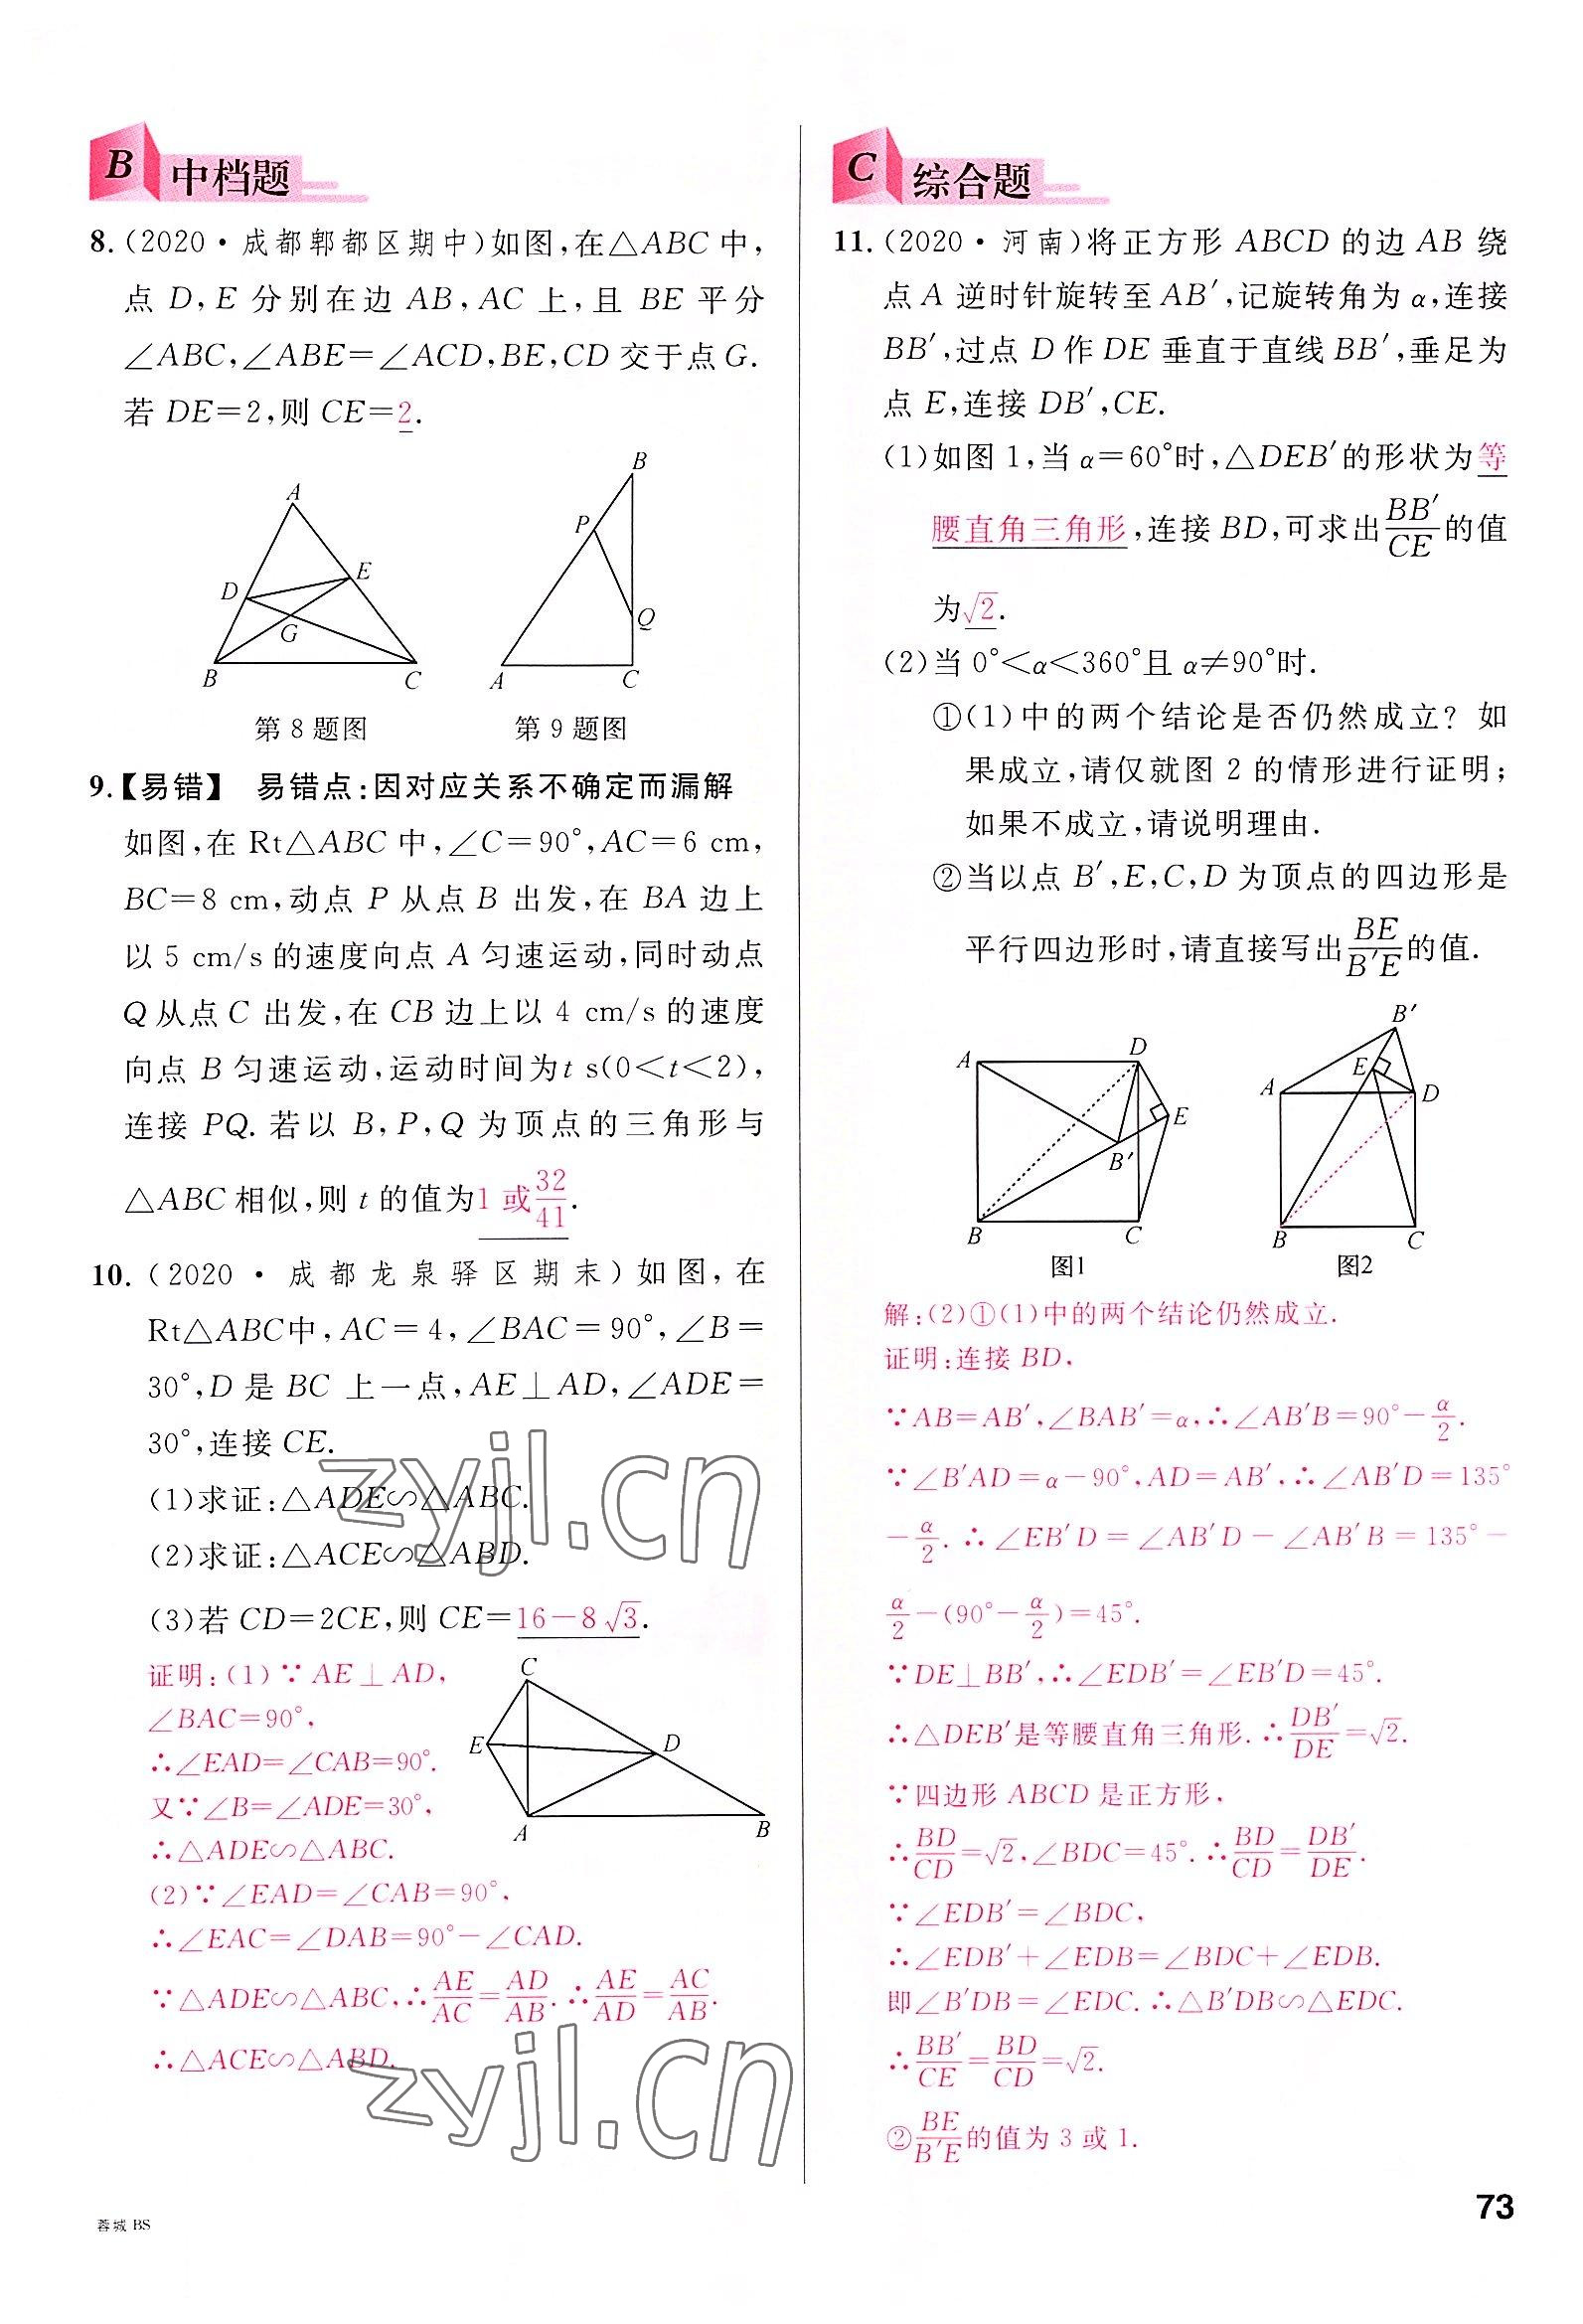 B 中档题
8.(2020·成都郫都区期中)如图,在△ABC中,
点 D,E 分别在边 AB,AC 上,且 BE 平分
∠ABC,∠ABE=∠ACD,BE,CD交于点G.
若 DE=2,则 CE=2.
A
D
E
G
B
C
第8题图
B
P
Q
A
C
第9题图
9.【易错】 易错点:因对应关系不确定而漏解
如图,在 Rt△ABC 中,∠C=90°,AC=6 cm,
BC=8 cm,动点 P 从点 B 出发,在 BA 边上
以 5 cm/s 的速度向点 A 匀速运动,同时动点
Q从点C 出发,在 CB 边上以 4 cm/s 的速度
向点 B 匀速运动,运动时间为t s(0<t<2),
连接 PQ. 若以 B,P,Q 为顶点的三角形与
△ABC相似,则 t 的值为1 或32/41.
10.(2020·成都龙泉驿区期末)如图,在
Rt△ABC中,AC=4,∠BAC=90°,∠B=
30°,D 是 BC 上一点,AE⊥AD,∠ADE=
30°,连接 CE.
(1)求证:△ADE∽△ABC.
(2)求证:△ACE∽△ABD.
(3)若 CD=2CE,则 CE=16-8√3.
证明:(1)∵AE⊥AD,
∠BAC=90°,
∴∠EAD=∠CAB=90°.
又∵∠B=∠ADE=30°,
∴△ADE∽△ABC.
C
E
D
A
B
(2)∵∠EAD=∠CAB=90°,
∴∠EAC=∠DAB=90°-∠CAD.
∵△ADE∽△ABC,∴AE/AC=AD/AB.∴AE/AD=AC/AB.
∴△ACE∽△ABD.
C 综合题
11.(2020·河南)将正方形 ABCD 的边 AB 绕
点 A 逆时针旋转至AB′,记旋转角为α,连接
BB′,过点 D 作 DE 垂直于直线BB′,垂足为
点 E,连接 DB′,CE.
(1)如图 1,当 α=60°时,△DEB′的形状为等
腰直角三角形,连接 BD,可求出BB′/CE的值
为√2.
(2)当 0°<α<360°且 α≠90°时.
①(1)中的两个结论是否仍然成立?如
果成立,请仅就图 2 的情形进行证明;
如果不成立,请说明理由.
②当以点 B′,E,C,D 为顶点的四边形是
平行四边形时,请直接写出BE/B′E的值.
A
D
E
B′
B
C
图1
B′
E
A
D
B
C
图2
解:(2)①(1)中的两个结论仍然成立.
证明:连接 BD,
∵AB=AB′,∠BAB′=α,∴∠AB′B=90°-α/2.
∵∠B′AD=α-90°,AD=AB′,∴∠AB′D=135°
-α/2.∴∠EB′D=∠AB′D-∠AB′B=135°-
α/2-(90°-α/2)=45°.
∵DE⊥BB′,∴∠EDB′=∠EB′D=45°.
∴△DEB′是等腰直角三角形.∴DB′/DE=√2.
∵四边形 ABCD 是正方形,
∴BD/CD=√2,∠BDC=45°.∴BD/CD=DB′/DE.
∵∠EDB′=∠BDC,
∴∠EDB′+∠EDB=∠BDC+∠EDB.
即∠B′DB=∠EDC.∴△B′DB∽△EDC.
∴BB′/CE=BD/CD=√2.
②BE/B′E的值为 3 或 1.
zyjl.cn
zyjl.cn
蓉城 BS
73